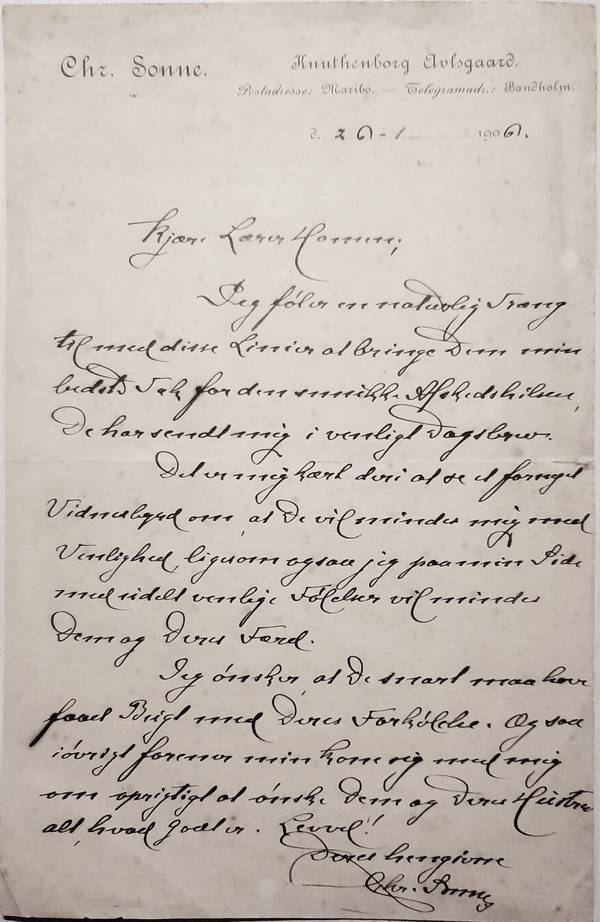 Chr. Sonne.
Knuthenborg Avlsgaard.
Postadresse: Maribo. — Telegramadr.: Bandholm.
d. 26-1 1906.
Kjære Lærer Homen;
Jeg föler en naturlig Trang
til med disse Linier at bringe Dem min
bedste Tak for den smukke Afskedshilsen,
De har sendt mig i venligt Dagsbrev.
Det er mig kært deri at se et fornyet
Vidnesbyrd om, at De vil mindes mig med
Venlighed, ligesom ogsaa jeg paa min Side
med udelt venlige Fölelser vil mindes
Dem og Deres Færd.
Jeg önsker, at De snart maa have
faaet Bugt med Deres Forkölelse. Og saa
iövrigt forener min Kone sig med mig
om oprigtigt at önske Dem og Deres Hustru
alt, hvad godt er. Levvel!
Deres hengivne
Chr. Sonne